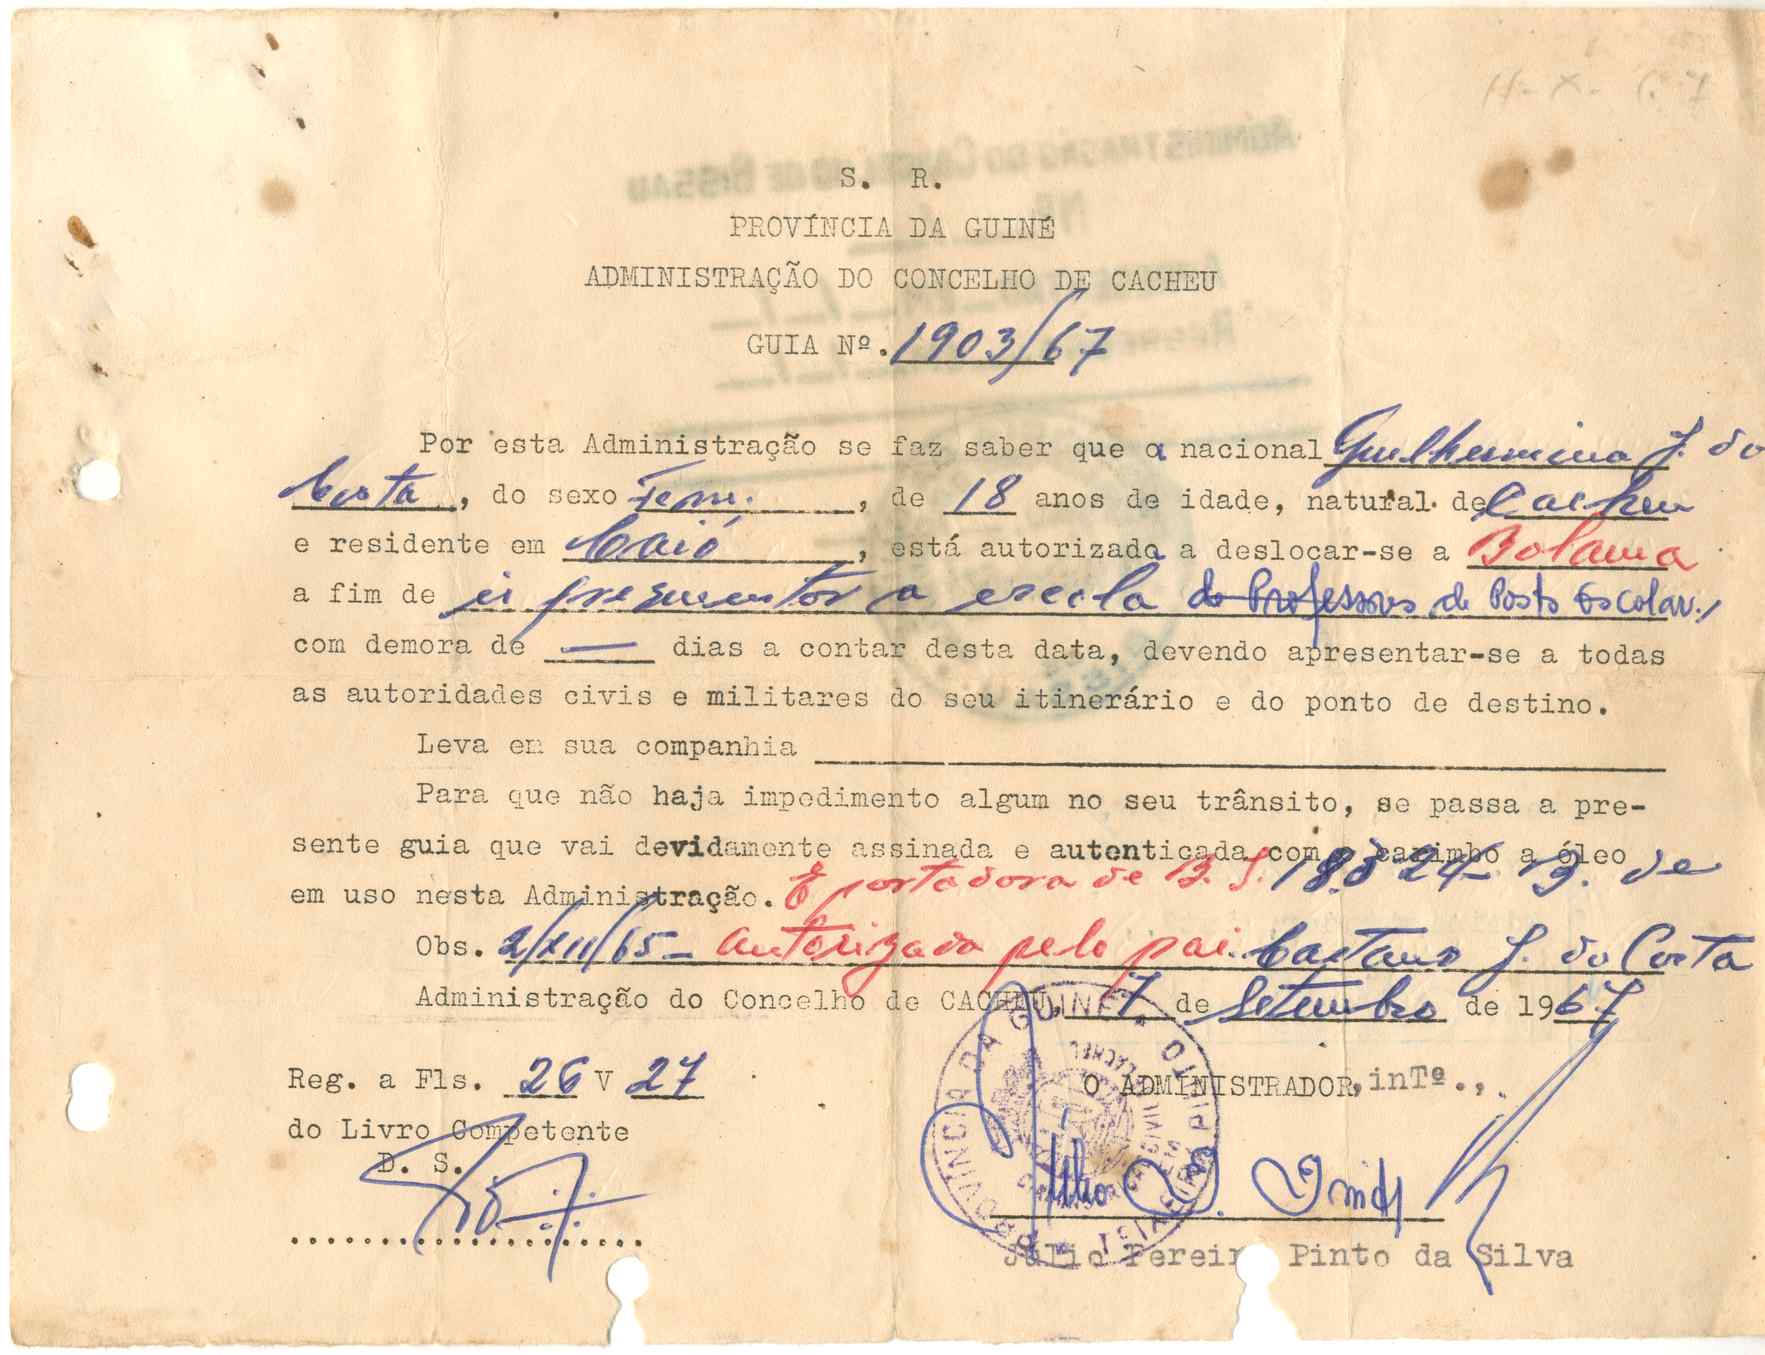 S. R.
PROVÍNCIA DA GUINÉ
ADMINISTRAÇÃO DO CONCELHO DE CACHEU
GUIA Nº. 1903/67
Por esta Administração se faz saber que a nacional Guilhermina J. da
Costa, do sexo Fem., de 18 anos de idade, natural de Cacheu
e residente em Caió, está autorizada a deslocar-se a Bolama
a fim de ir a escola de Professores de Posto Escolar.,
com demora de — dias a contar desta data, devendo apresentar-se a todas
as autoridades civis e militares do seu itinerário e do ponto de destino.
Leva em sua companhia
Para que não haja impedimento algum no seu trânsito, se passa a pre-
sente guia que vai devidamente assinada e autenticada com o carimbo a óleo
em uso nesta Administração. É portadora de B. I. de
Obs. 2/XII/65 - Autorizada pelo pai Caetano J. da Costa
Administração do Concelho de CACHEU, 7 de Setembro de 1967
Reg. a Fls. 26 V 27
do Livro Competente
D. S.
O ADMINISTRADOR, inTº.,
Júlio Pereira Pinto da Silva
PROVÍNCIA DA GUINÉ